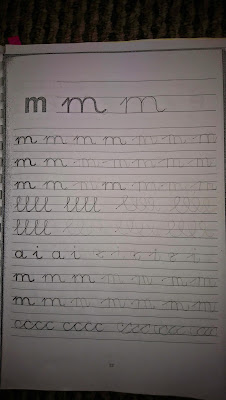 m m m
m m m m m m m m
m m m m m m m m
m m m m m m m m
llll llll llll llll
llll
a i a i
m m m m m m m m
m m m m m m m m
cccc cccc cccc cccc